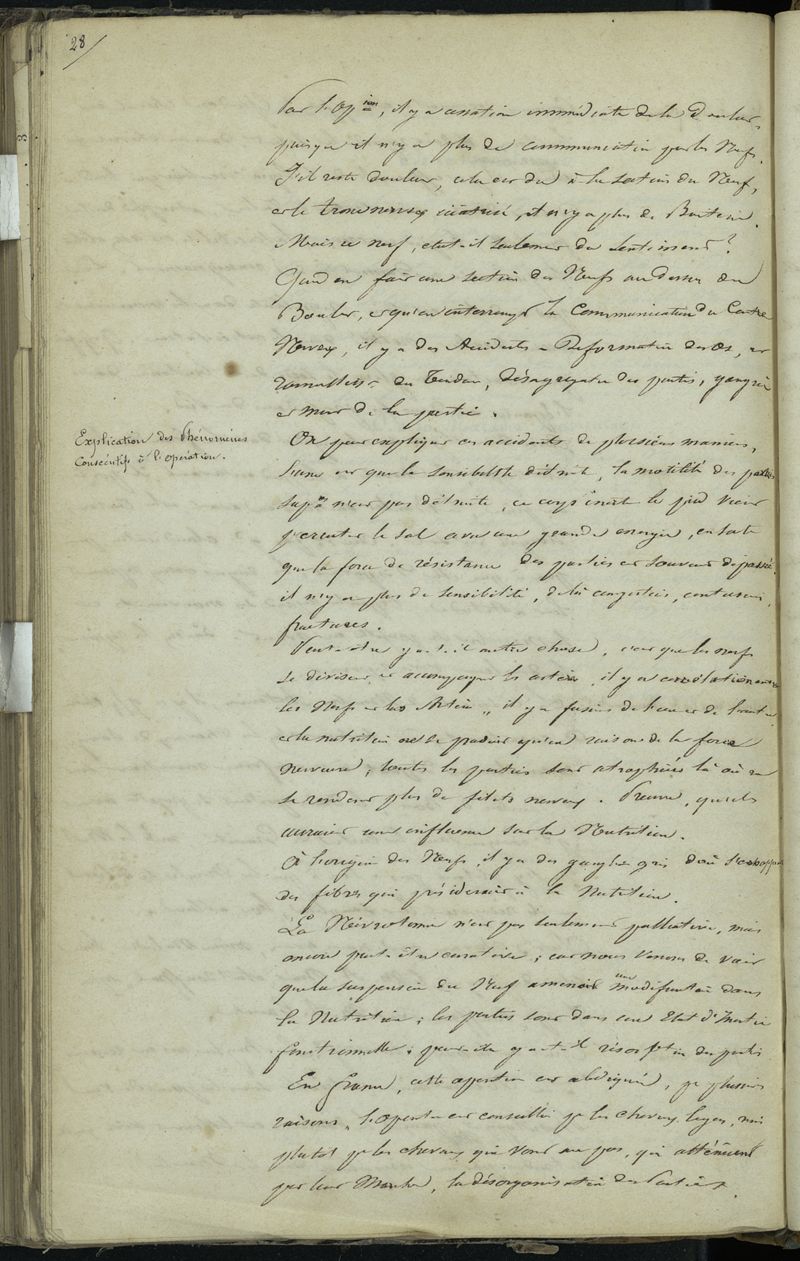 28/
Par l'Op.ion, il y a cessation immédiate de la Douleur,
puisqu'il n'y a plus de communication par les Nerfs.
S'il reste douleur, cela est du à la section du Nerf,
et le trou nerveux cicatrisé, il n'y a plus de
Mais ce nerf, était-il seulement du sentiment ?
Quand on fait une section des Nerfs au dessus du
Boulet, et qu'on interrompt la Communication du Centre
Nerveux, il y a des Accidents = Déformation des Os, et
du Tendon, désagrégation des parties, gangrène
et mort de la partie.
Explication des Phénomènes
Consécutifs à l'opération.
On peut expliquer ces accidents de plusieurs manières,
l'une est que la sensibilité détruite, la motilité des parties
sup.es n'est pas détruite, ce corps inerte le pied vient
percuter le sol avec une grande énergie, en sorte
que la force de résistance des parties est souvent dépassée.
il n'y a plus de sensibilité, de là congestions, contusions,
fractures.
Peut-être y a-t-il autre chose, c'est que les nerfs
se divisent et accompagnent les artères, il y a corrélation entre
les Nerfs et les Artères, il y a fusion de l'un et de l'autre
et la nutrition ne se produit qu'en raison de la force
nerveuse ; toutes les parties sont atrophiées là où ne
se rendent plus de filets nerveux. Preuve, qu'ils
auraient une influence sur la Nutrition.
À l'origine des Nerfs, il y a des ganglions gris d'où s'échappent
des fibres qui présideraient à la Nutrition.
La Névrotomie n'est pas seulement palliative, mais
encore peut être curative ; car nous venons de voir
que la suspension du Nerf amenait une modification dans
la Nutrition ; les parties sont dans un Etat d'Inertie
fonctionnelle ; peut-être y a-t-il résorption des parties
En France, cette opération est abdiquée, p.r plusieurs
raisons, l'Opération est conseillée p.r les chevaux légers, mais
plutôt p.r les chevaux qui vont au pas, qui atténuent
par leur Marche, la désorganisation des Parties.